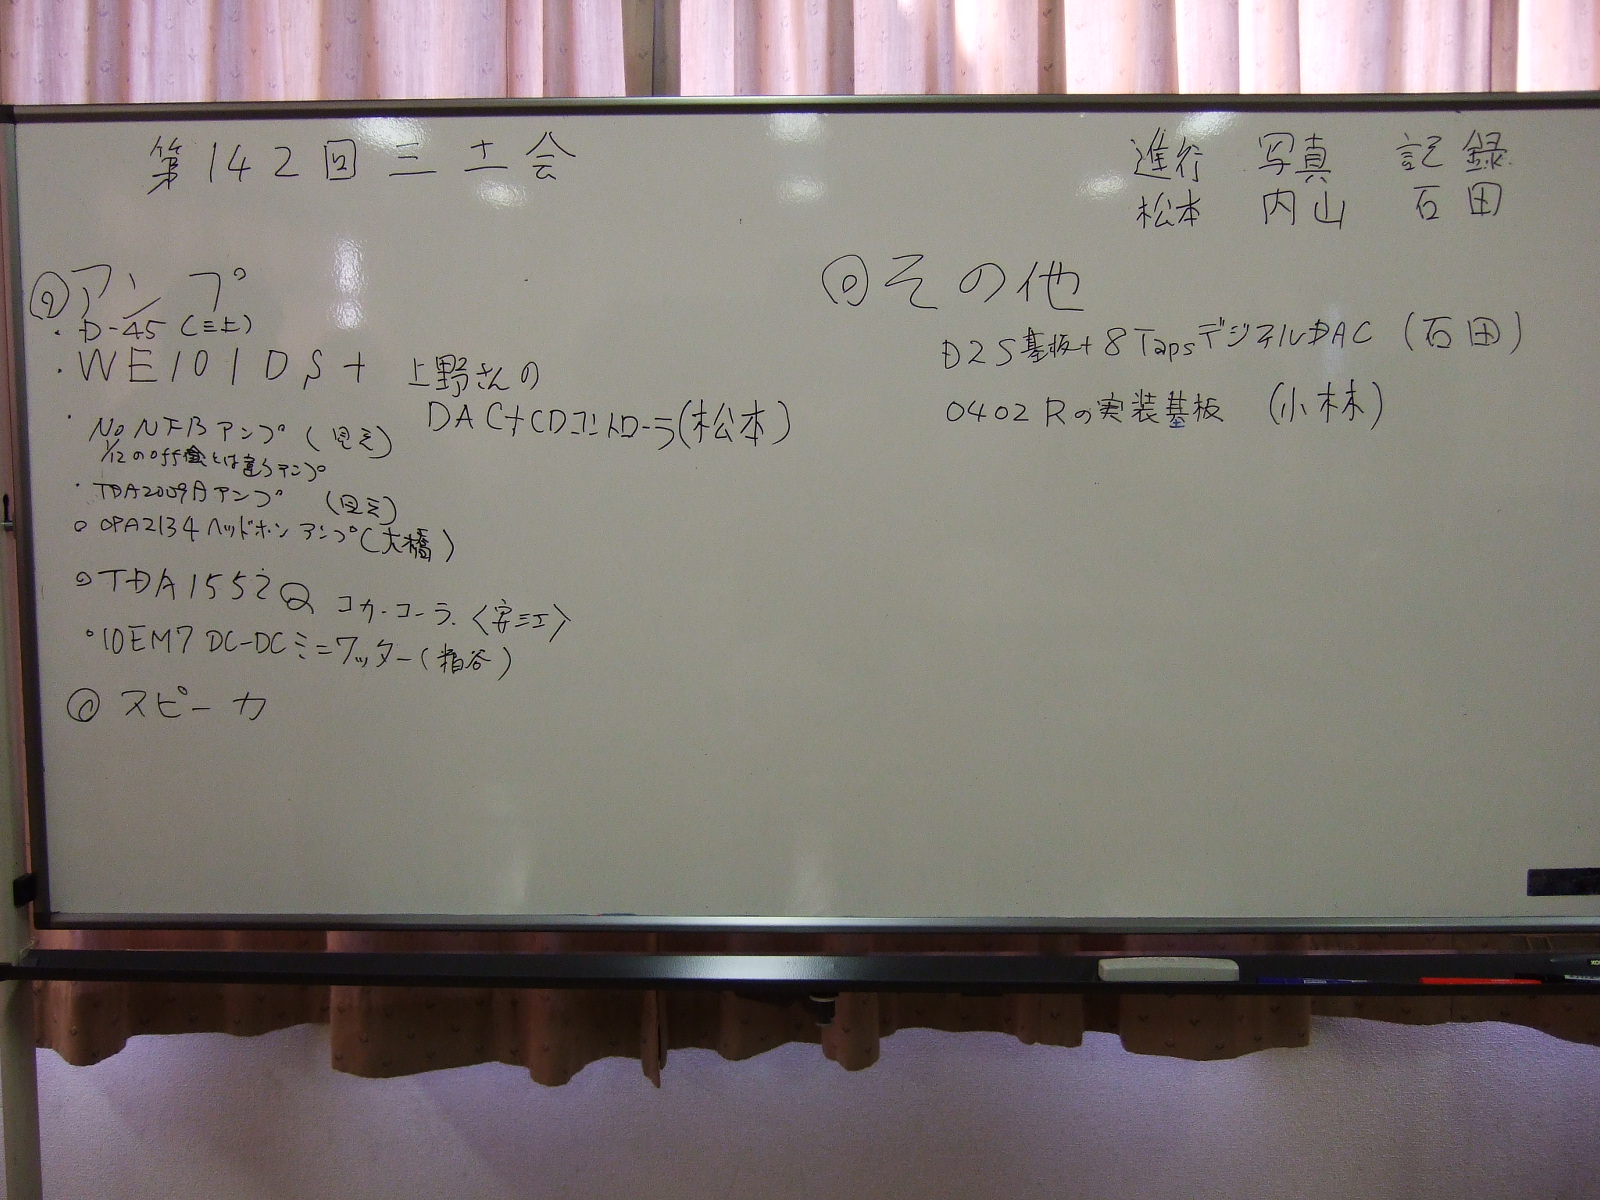 第142回 三土会
進行 写真 記録
松本 内山 石田
◎アンプ
・D-45 (三上)
・WE101DS+ 上野さんの
DAC+CDコントローラ(松本)
・No NFB アンプ
1/12のoff会とは違うアンプ
・TDA2009Aアンプ
○ OPA2134 ヘッドホンアンプ(大橋)
○TDA1552Q コカ・コーラ. 〈安江〉
○10EM7 DC-DCミニワッター(粕谷)
◎ スピーカ
◎その他
D2S基板+8TapsデジタルDAC (石田)
0402Rの実装基板 (小林)